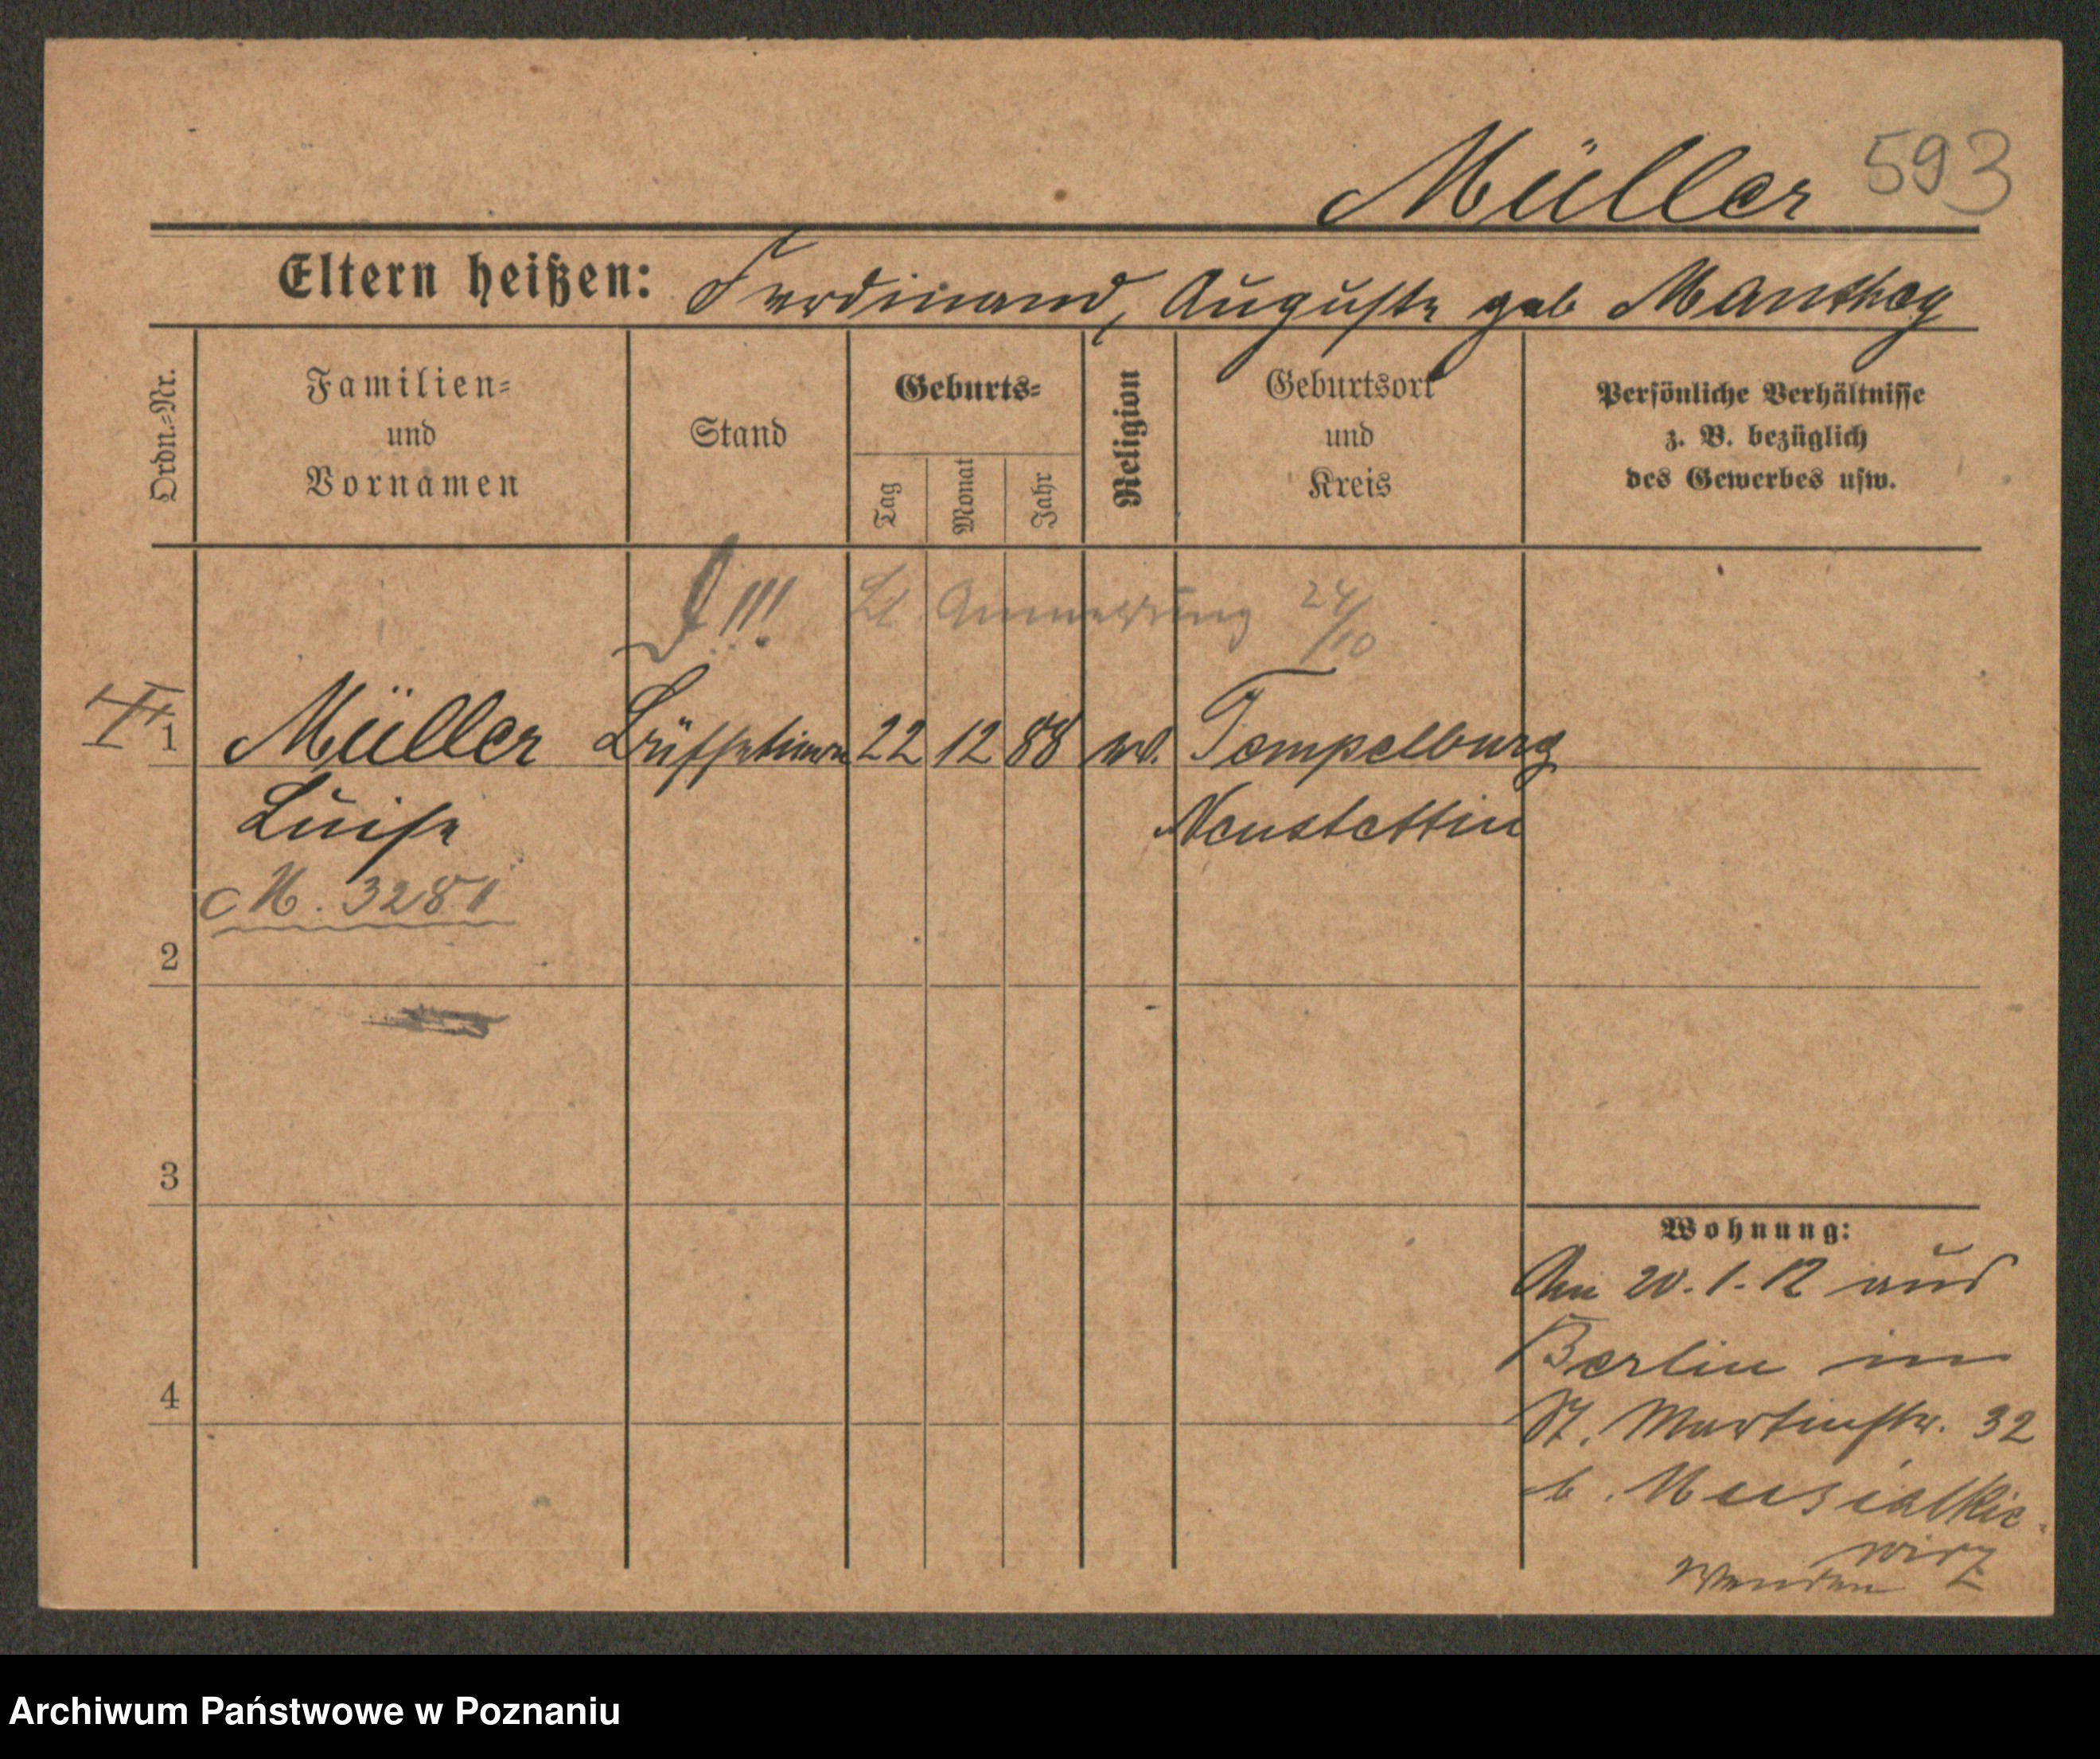 Müller 593
Eltern heißen: Ferdinand, Auguste geb Manthey
Ordn.=Nr.
Familien=
und
Vornamen
Stand
Geburts=
Tag
Monat
Jahr
Religion
Geburtsort
und
Kreis
Persönliche Verhältnisse
z. B. bezüglich
des Gewerbes usw.
!!! Lt Anmeldung 24/10
1 Müller Büffetierin 22 12 88 ev. Tempelburg
Luise Neustettin
M. 3281
2
3
4
Wohnung:
Am 20.1.12 aus
Berlin in
St. Martinstr. 32
b. Musialkie-
wicz
Wenden
Archiwum Państwowe w Poznaniu